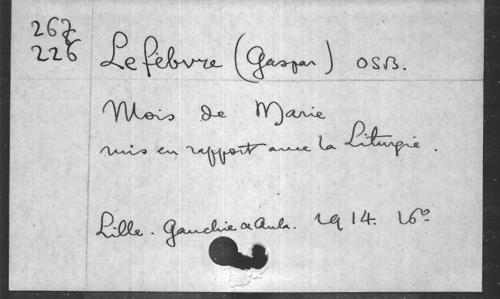 267
226
Lefébvre (Gaspar) OSB.
Mois de Marie
mis en rapport avec la Liturgie.
Lille. 1914. 16º